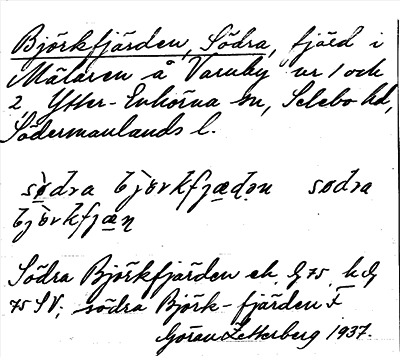 Björkfjärden, Södra, fjärd i
Mälaren å Varuby nr 1 och
2, Ytter-Enhörna sn, Selebo hd,
Södermanlands l.
sødra bjørkfjædən sødra
bjørkfjæn
Södra Björkfjärden ek. G 75
75 SV; södra Björk-fjärden F
Göran Zetterberg 1937.